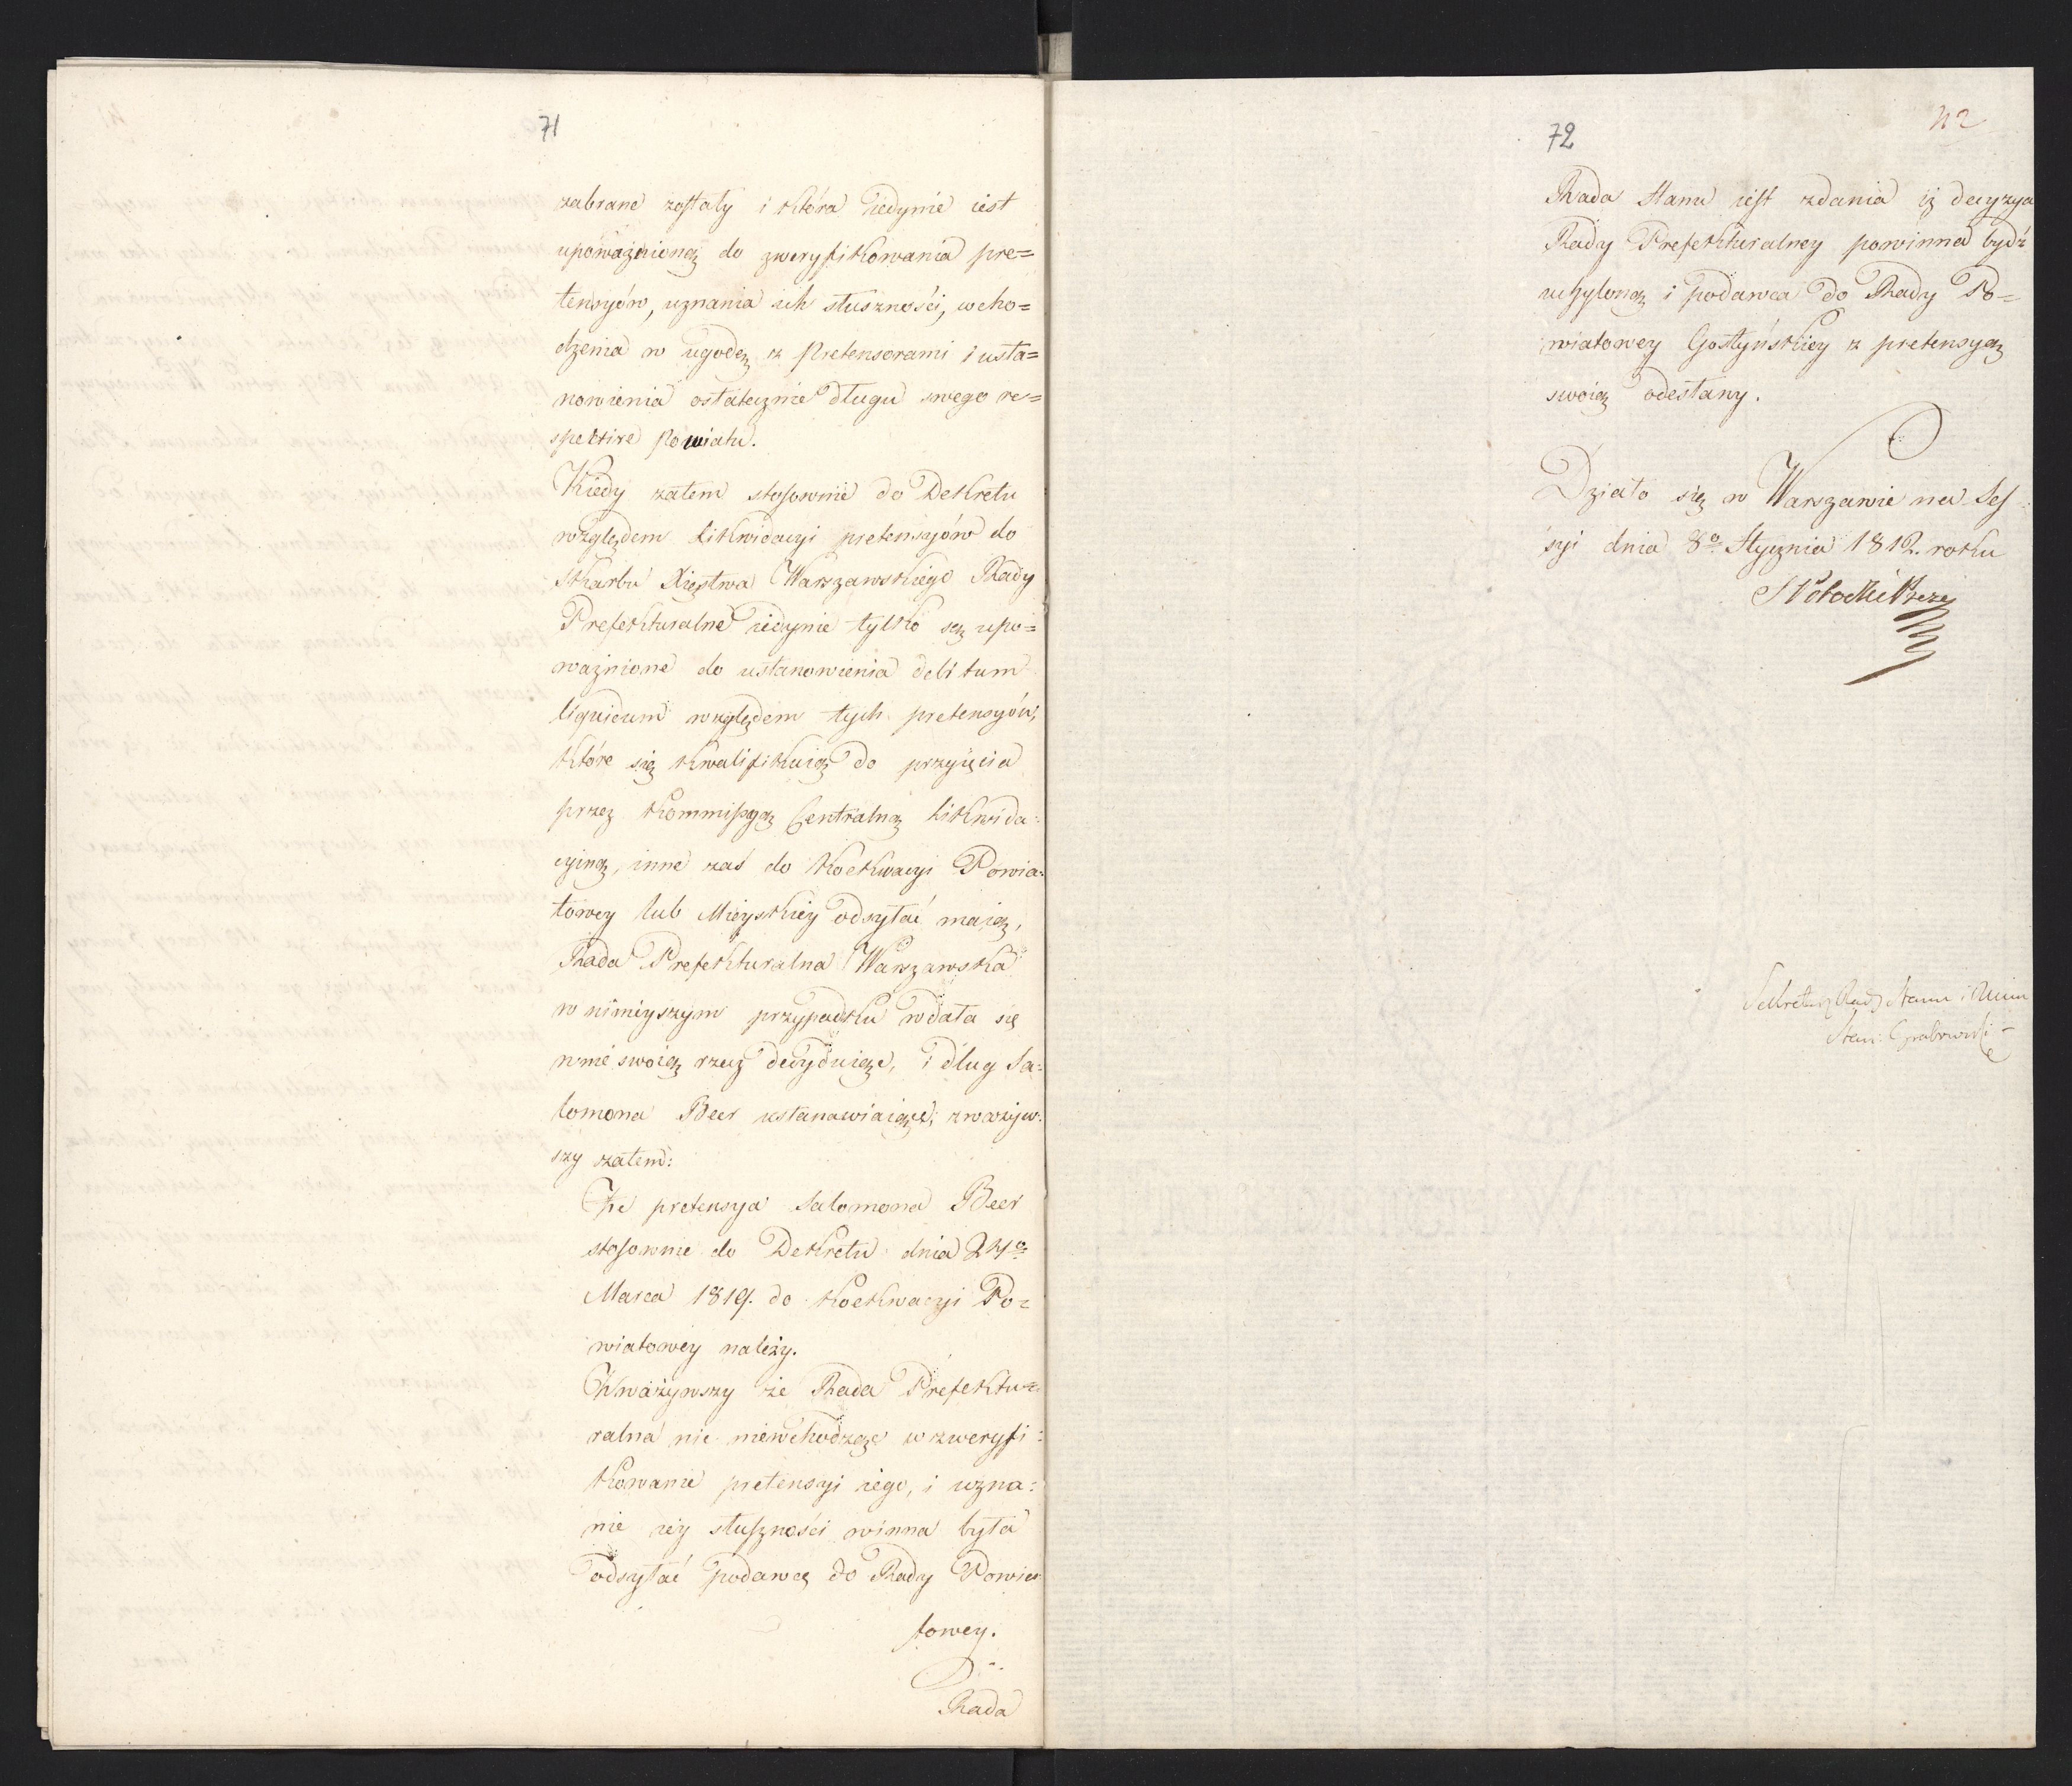 71
zabrane zostały i która iedynie iest
upoważnioną do zweryfikowania pre=
tensyów, uznania ich słuszności, wcho=
dzenia w ugodę z Pretensorami i usta=
nowienia ostatecznie długu swego re=
spective Powiatu.
Kiedy zatem stosownie do Dekretu
względem Likwidacyi pretensyów do
Skarbu Xięstwa Warszawskiego Rady
Prefekturalne iedynie tylko są upo=
ważnione do ustanowienia debitum
liquidum względem tych pretensyów,
które się kwalifikuią do przyięcia
przez Kommissyą Centralną Likwida=
cyiną, inne zaś do Koekwacyi Powia=
towey lub Mieyskiey odsyłać maią,
Rada Prefekturalna Warszawska
w ninieyszym przypadku wdała się
w nie swoią rzecz decyduiąc, i dług Sa=
lomona Beer ustanawiaiąc; zważyw=
szy zatem:
Że pretensya Salomona Beer
stosownie do Dekretu dnia 24o
Marca 1819. do Koekwacyi Po=
wiatowey należy.
Zważywszy że Rada Prefektu=
ralna nie niewchodząc w zweryfi=
kowanie pretensyi iego, i uzna=
nie iey słuszności winna była
odsyłać podawcę do Rady Powia=
towey.
Rada
72
42
Rada Stanu iest zdania iż decyzya
Rady Prefekturalney powinna bydź
uchyloną i podawca do Rady Po=
wiatowey Gostyńskiey z pretensyą
swoią odesłany.
Działo się w Warszawie na Ses=
syi dnia 8o Stycznia 1812. roku
S Potocki Prezes
Sekretarz Rady Stanu i Minis
Stan: Grabowski